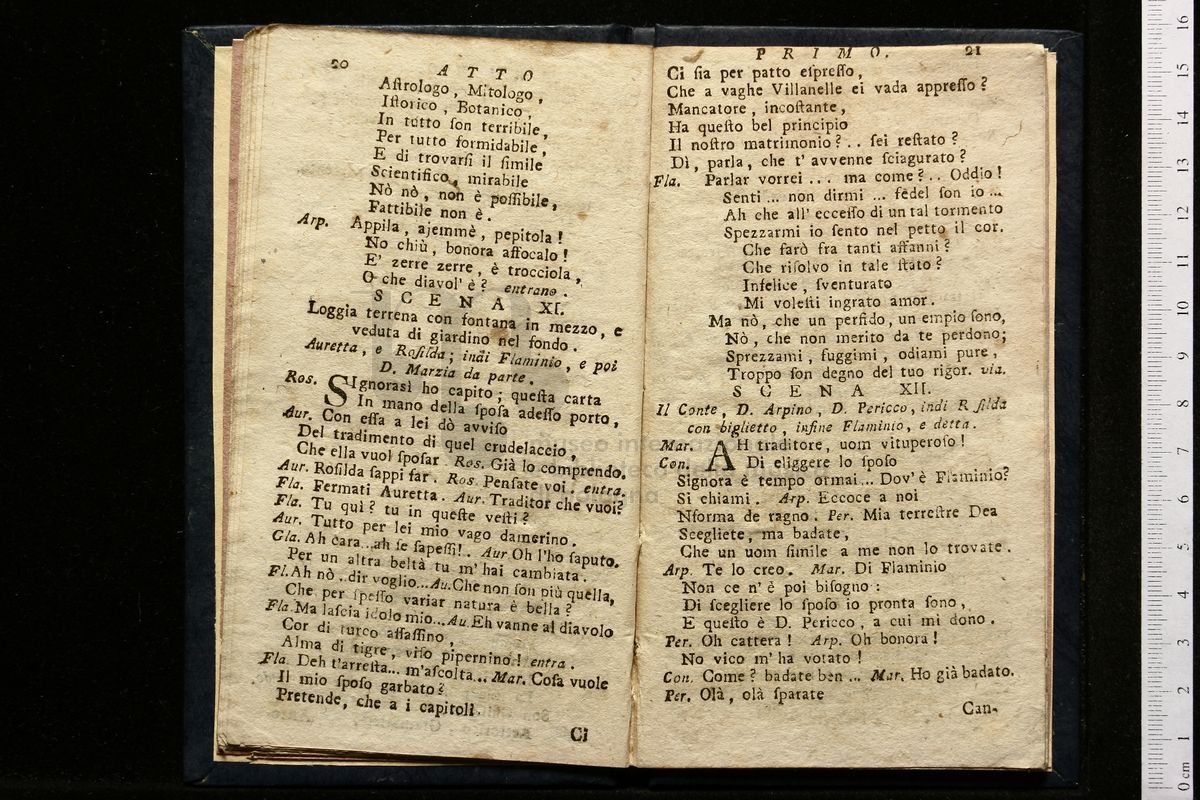 20
A T T O
Aſtrologo, Mitologo,
Iſtorico, Botanico,
In tutto ſon terribile,
Per tutto formidabile,
E di trovarſi il ſimile
Scientifico, mirabile
Nò nò, non è poſſibile,
Fattibile non è.
Arp. Appila, ajemmè, pepitola!
No chiù, bonora affocalo!
E' zerre zerre, è trocciola,
O che diavol' è? entrano.
S C E N A XI.
Loggia terrena con fontana in mezzo, e
veduta di giardino nel fondo.
Auretta, e Roſilda; indi Flaminio, e poi
D. Marzia da parte.
Ros. SIgnorasì ho capito; queſta carta
In mano della ſpoſa adeſſo porto,
Aur. Con eſſa a lei dò avviſo
Del tradimento di quel crudelaccio,
Che ella vuol ſpoſar. Ros. Già lo comprendo.
Aur. Roſilda ſappi far. Ros. Penſate voi. entra.
Fla. Fermati Auretta. Aur. Traditor che vuoi?
Fla. Tu quì? tu in queſte veſti?
Aur. Tutto per lei mio vago damerino.
Gla. Ah cara...ah ſe ſapeſſi!. Aur. Oh l'ho ſaputo.
Per un altra beltà tu m'hai cambiata.
Fl. Ah nò..dir voglio...Au. Che non ſon più quella,
Che per ſpeſſo variar natura è bella?
Fla. Ma laſcia idolo mio...Au. Eh vanne al diavolo
Cor di turco aſſaſſino,
Alma di tigre, viſo pipernino! entra.
Fla. Deh t'arreſta... m'aſcolta... Mar. Coſa vuole
Il mio ſpoſo garbato?
Pretende, che a i capitoli
Ci
P R I M O.
21
Ci ſia per patto eſpreſſo,
Che a vaghe Villanelle ei vada appreſſo?
Mancatore, incoſtante,
Ha queſto bel principio
Il noſtro matrimonio?.. ſei reſtato?
Dì, parla, che t' avvenne ſciagurato?
Fla. Parlar vorrei... ma come?.. Oddio!
Senti... non dirmi... fedel ſon io...
Ah che all' ecceſſo di un tal tormento
Spezzarmi io ſento nel petto il cor.
Che farò fra tanti affanni?
Che riſolvo in tale ſtato?
Infelice, ſventurato
Mi voleſti ingrato amor.
Ma nò, che un perfido, un empio ſono,
Nò, che non merito da te perdono;
Sprezzami, fuggimi, odiami pure,
Troppo ſon degno del tuo rigor. via.
S C E N A XII.
Il Conte, D. Arpino, D. Pericco, indi R ſilda
con biglietto, infine Flaminio, e detta.
Mar. AH traditore, uom vituperoſo!
Con. Di eliggere lo ſpoſo
Signora è tempo ormai... Dov' è Flaminio?
Si chiami. Arp. Eccoce a noi
Nforma de ragno. Per. Mia terreſtre Dea
Scegliete, ma badate,
Che un uom ſimile a me non lo trovate.
Arp. Te lo creo. Mar. Di Flaminio
Non ce n' è poi biſogno:
Di ſcegliere lo ſpoſo io pronta ſono,
E queſto è D. Pericco, a cui mi dono.
Per. Oh cattera! Arp. Oh bonora!
No vico m' ha votato!
Con. Come? badate ben... Mar. Ho già badato.
Per. Olà, olà ſparate
Can-
0 cm 1 2 3 4 5 6 7 8 9 10 11 12 13 14 15 16